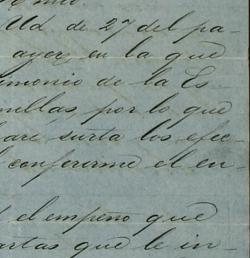 Ud. de 27 del pa-
ayer, en la que
imonio de la Es
nillas por lo que
are surta los efec-
conferirme el en-
el empeño que
artas que le in-